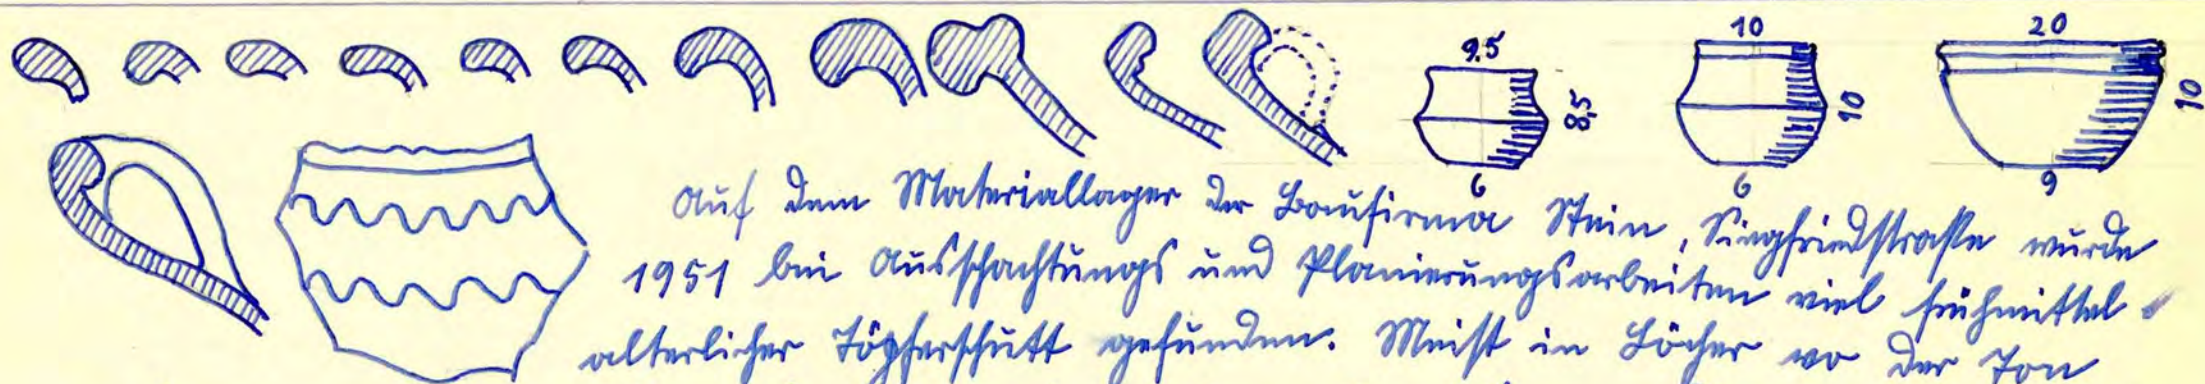 9,5 10 20
8,5 10 10
6 6 9
Auf dem Materiallager der Baufirma Stein, Siegfriedstraße wurde
1951 bei Ausschachtungs und Planierungsarbeiten viel frühmittel-
alterlicher Töpferschutt gefunden. Meist in Löcher wo der Ton